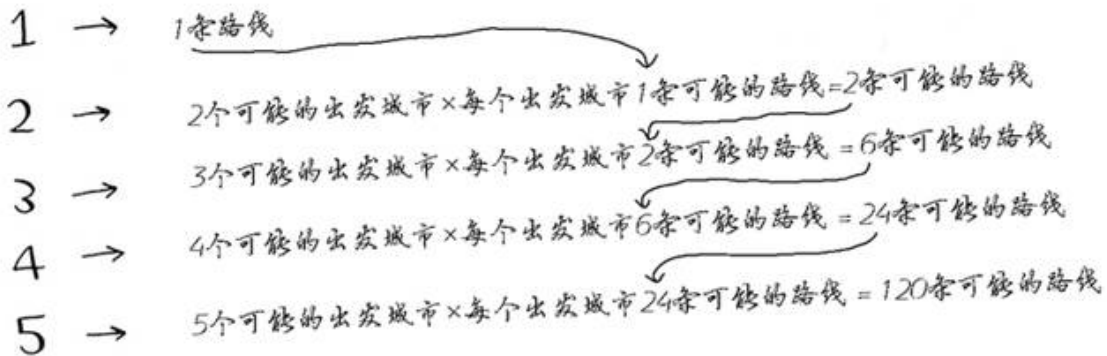 1 → 1条路线
2 → 2个可能的出发城市×每个出发城市1条可能的路线=2条可能的路线
3 → 3个可能的出发城市×每个出发城市2条可能的路线=6条可能的路线
4 → 4个可能的出发城市×每个出发城市6条可能的路线=24条可能的路线
5 → 5个可能的出发城市×每个出发城市24条可能的路线=120条可能的路线